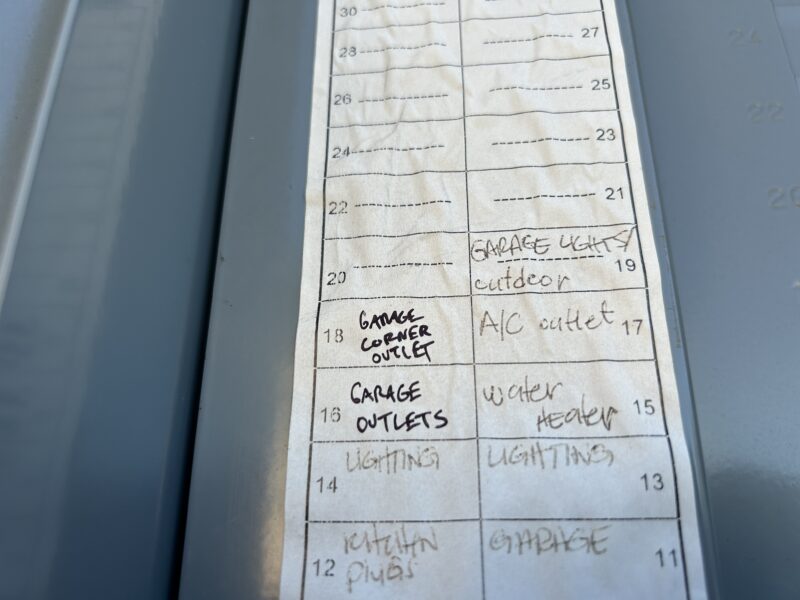 30
27
28
25
26
23
24
21
22
GARAGE LIGHTS/
outdoor 19
20
GARAGE
CORNER
OUTLET
18
A/C outlet 17
GARAGE
OUTLETS
16
water
HEater 15
LIGHTING
14
LIGHTING
13
KITCHEN
plugs
12
GARAGE
11
24
22
20